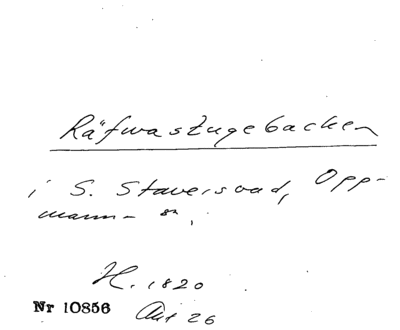 Räfwastugebacken
i S. Staversvad, Opp-
manna sn.
H. 1820
Akt 26
Nr 10856